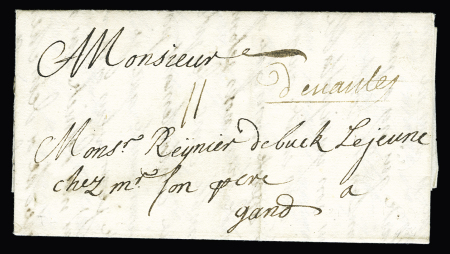 Monsieur
De nantes
11
Monsr Reÿnier debuck Lejeune
chez mr. son pere
a
gand